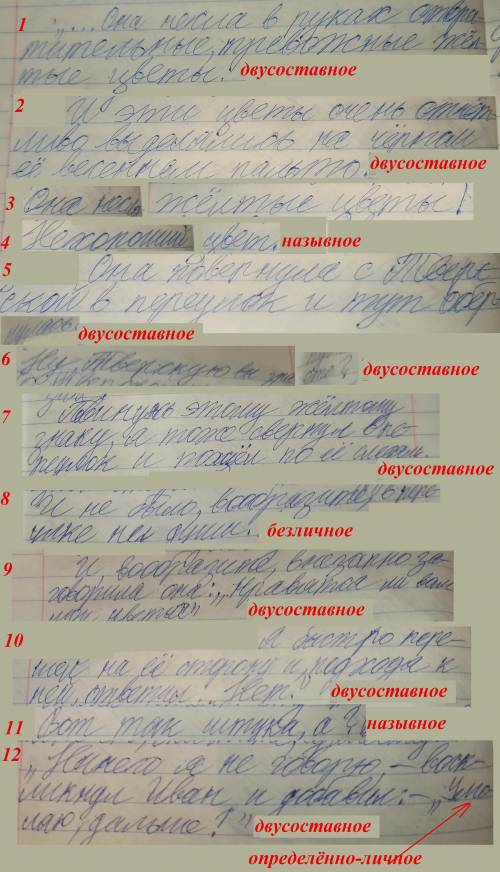 1 „... Она несла в руках отвра-
тительные, тревожные жёл-
тые цветы. двусоставное
2 И эти цветы очень отчёт-
ливо выделялись на чёрном
её весеннем пальто. двусоставное
3 Она несла жёлтые цветы!
4 Нехороший цвет. назывное
5 Она повернула с Твер-
ской в переулок и тут обер-
нулась. двусоставное
6 Ну, Тверскую вы двусоставное
7 Повинуясь этому жёлтому
знаку, я тоже свернул в пе-
реулок и пошёл по её следам.
двусоставное
8 И не было, вообразите, в пере-
улке ни души. безличное
9 И, вообразите, внезапно за-
говорила она: „Нравятся ли вам
мои цветы?" двусоставное
10 Я быстро пере-
шёл на её сторону и, подходя к
ней, ответил: „Нет. двусоставное
11 Вот так штука, а? назывное
12 „Ничего я не говорю, – воск-
ликнул Иван и добавил: – „Умо-
ляю, дальше!" двусоставное
определённо-личное